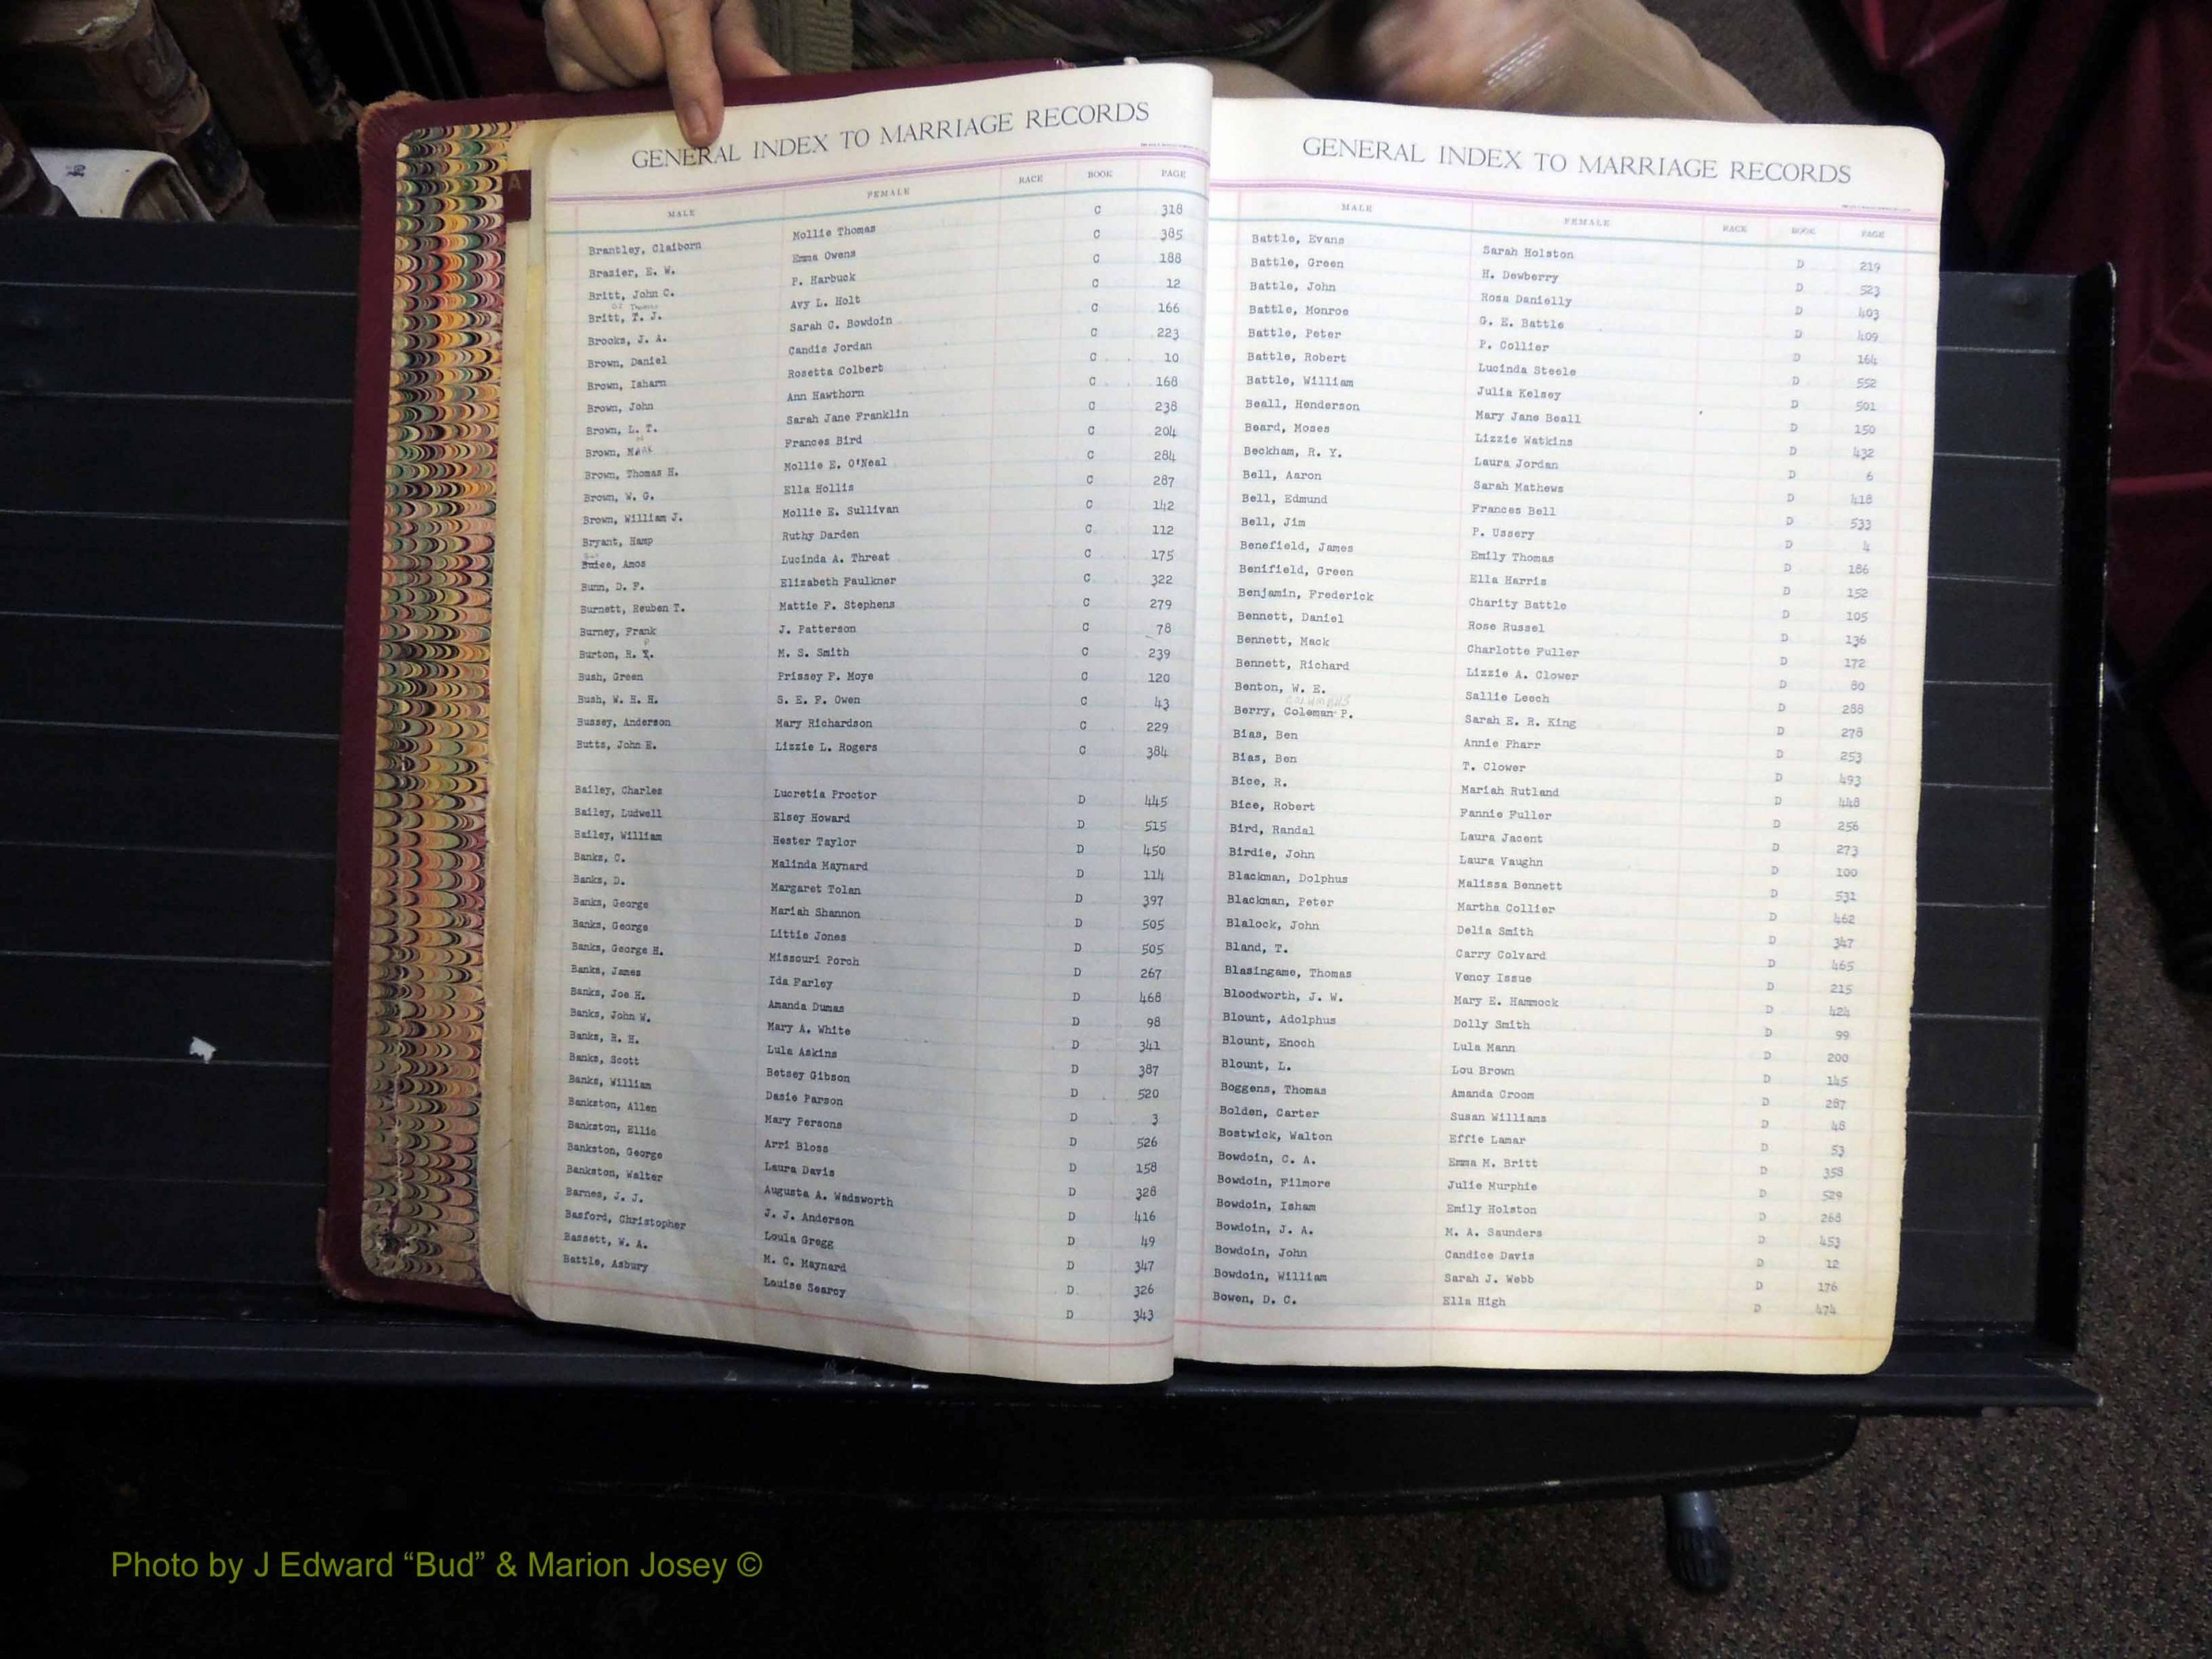 GENERAL INDEX TO MARRIAGE RECORDS
MALE FEMALE RACE BOOK PAGE
Brantley, Claiborn Mollie Thomas C 318
Brazier, E. W. Emma Owens C 385
Britt, John C. P. Harbuck C 188
Britt, T. J. Avy L. Holt C 12
Brooks, J. A. Sarah C. Bowdoin C 166
Brown, Daniel Candis Jordan C 223
Brown, Isham Rosetta Colbert C 10
Brown, John Ann Hawthorn C 168
Brown, L. T. Sarah Jane Franklin C 238
Brown, Mark Frances Bird C 204
Brown, Thomas H. Mollie E. O'Neal C 284
Brown, W. G. Ella Hollis C 287
Brown, William J. Mollie E. Sullivan C 142
Bryant, Hamp Ruthy Darden C 112
Buice, Amos Lucinda A. Threat C 175
Bunn, D. F. Elizabeth Faulkner C 322
Burnett, Reuben T. Mattie F. Stephens C 279
Burney, Frank J. Patterson C 78
Burton, R. M. S. Smith C 239
Bush, Green Prissey F. Moye C 120
Bush, W. H. H. S. E. F. Owen C 43
Bussey, Anderson Mary Richardson C 229
Butts, John E. Lizzie L. Rogers C 384
Bailey, Charles Lucretia Proctor D 445
Bailey, Ludwell Elsey Howard D 515
Bailey, William Hester Taylor D 450
Banks, C. Malinda Maynard D 114
Banks, D. Margaret Tolan D 397
Banks, George Mariah Shannon D 505
Banks, George Littie Jones D 505
Banks, George H. Missouri Porch D 267
Banks, James Ida Farley D 468
Banks, Joe H. Amanda Dumas D 98
Banks, John W. Mary A. White D 341
Banks, R. H. Lula Askins D 387
Banks, Scott Betsey Gibson D 520
Banks, William Dasie Parson D 3
Bankston, Allen Mary Persons D 526
Bankston, Ellic Arri Bloss D 158
Bankston, George Laura Davis D 328
Bankston, Walter Augusta A. Wadsworth D 416
Barnes, J. J. J. J. Anderson D 49
Basford, Christopher Loula Gregg D 347
Bassett, W. A. M. C. Maynard D 326
Battle, Asbury Louise Searcy D 343
GENERAL INDEX TO MARRIAGE RECORDS
MALE FEMALE RACE BOOK PAGE
Battle, Evans Sarah Holston D 219
Battle, Green H. Dewberry D 523
Battle, John Rosa Danielly D 403
Battle, Monroe G. E. Battle D 409
Battle, Peter P. Collier D 164
Battle, Robert Lucinda Steele D 552
Battle, William Julia Kelsey D 501
Beall, Henderson Mary Jane Beall D 150
Beard, Moses Lizzie Watkins D 432
Beckham, R. Y. Laura Jordan D 6
Bell, Aaron Sarah Mathews D 418
Bell, Edmund Frances Bell D 533
Bell, Jim P. Ussery D 4
Benefield, James Emily Thomas D 186
Benifield, Green Ella Harris D 152
Benjamin, Frederick Charity Battle D 105
Bennett, Daniel Rose Russel D 136
Bennett, Mack Charlotte Fuller D 172
Bennett, Richard Lizzie A. Clower D 80
Benton, W. E. Sallie Leech D 288
COLUMBUS
Berry, Coleman P. Sarah E. R. King D 278
Bias, Ben Annie Pharr D 253
Bias, Ben T. Clower D 493
Bice, R. Mariah Rutland D 448
Bice, Robert Fannie Fuller D 256
Bird, Randal Laura Jacent D 273
Birdie, John Laura Vaughn D 100
Blackman, Dolphus Malissa Bennett D 531
Blackman, Peter Martha Collier D 462
Blalock, John Delia Smith D 347
Bland, T. Carry Colvard D 465
Blasingame, Thomas Vency Issue D 215
Bloodworth, J. W. Mary E. Hammock D 424
Blount, Adolphus Dolly Smith D 99
Blount, Enoch Lula Mann D 200
Blount, L. Lou Brown D 145
Boggens, Thomas Amanda Croom D 287
Bolden, Carter Susan Williams D 48
Bostwick, Walton Effie Lamar D 53
Bowdoin, C. A. Emma M. Britt D 358
Bowdoin, Filmore Julie Murphie D 529
Bowdoin, Isham Emily Holston D 268
Bowdoin, J. A. M. A. Saunders D 453
Bowdoin, John Candice Davis D 12
Bowdoin, William Sarah J. Webb D 176
Bowen, D. C. Ella High D 474
Photo by J Edward “Bud” & Marion Josey ©